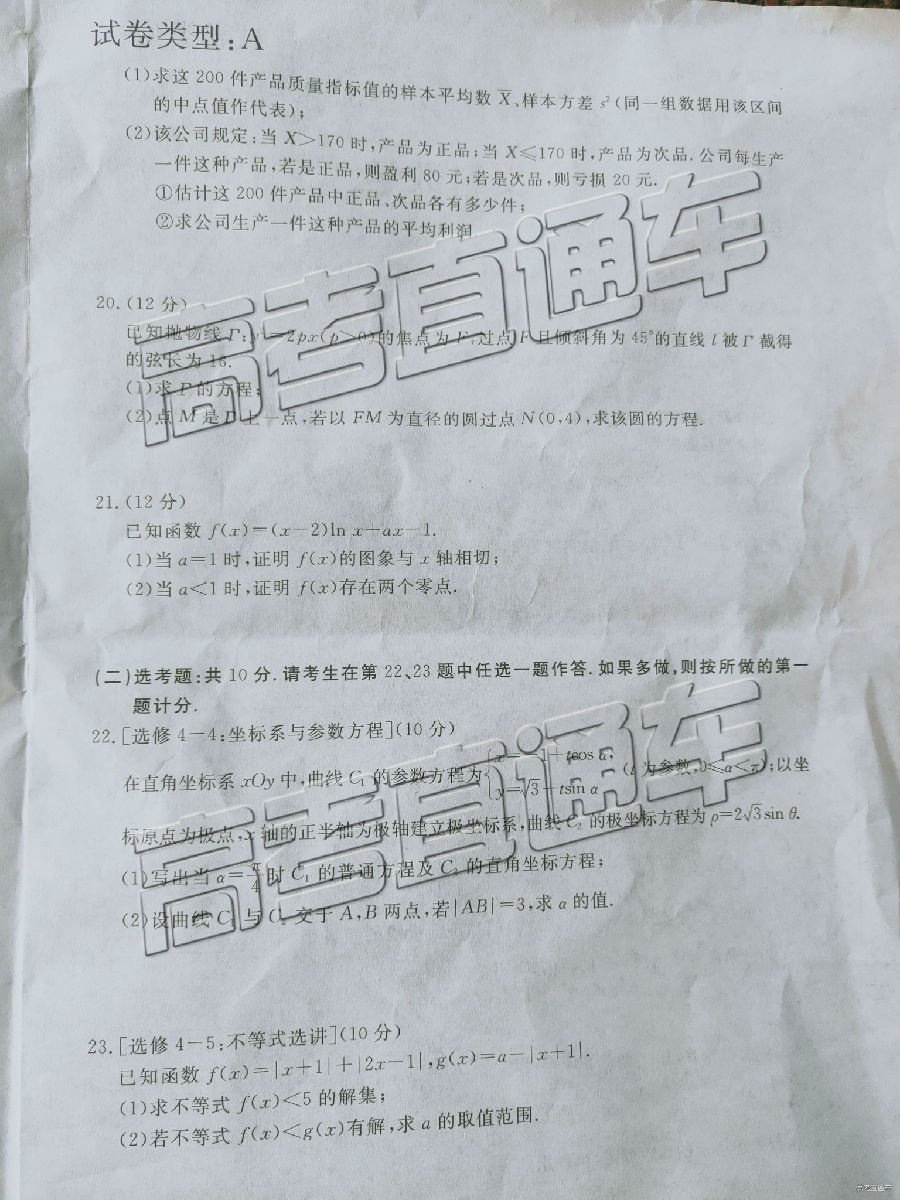 试卷类型:A
(1)求这 200 件产品质量指标值的样本平均数 X̄、样本方差 s²(同一组数据用该区间
的中点值作代表);
(2)该公司规定:当 X>170 时,产品为正品;当 X⩽170 时,产品为次品.公司每生产
一件这种产品,若是正品,则盈利 80 元;若是次品,则亏损 20 元.
①估计这 200 件产品中正品、次品各有多少件;
②求公司生产一件这种产品的平均利润.
20.(12 分)
已知抛物线 Γ:y²=2px(p>0)的焦点为 F,过点 F 且倾斜角为 45°的直线 l 被 Γ 截得
的弦长为 16.
(1)求 Γ 的方程;
(2)点 M 是 Γ 上一点,若以 FM 为直径的圆过点 N(0,4),求该圆的方程.
高考直通车
21.(12 分)
已知函数 f(x)=(x-2)ln x-ax-1.
(1)当 a=1 时,证明 f(x)的图象与 x 轴相切;
(2)当 a<1 时,证明 f(x)存在两个零点.
(二)选考题:共 10 分.请考生在第 22、23 题中任选一题作答.如果多做,则按所做的第一
题计分.
22.[选修 4-4:坐标系与参数方程](10 分)
x= 1+tcos α,
在直角坐标系 xOy 中,曲线 C₁ 的参数方程为{ (t 为参数,0⩽α<π);以坐
y=√3+tsin α
标原点为极点,x 轴的正半轴为极轴建立极坐标系,曲线 C₂ 的极坐标方程为 ρ=2√3sin θ.
(1)写出当 α=π/4 时 C₁ 的普通方程及 C₂ 的直角坐标方程;
(2)设曲线 C₁ 与 C₂ 交于 A,B 两点,若|AB|=3,求 α 的值.
高考直通车
23.[选修 4-5:不等式选讲](10 分)
已知函数 f(x)=|x+1|+|2x-1|,g(x)=a-|x+1|.
(1)求不等式 f(x)<5 的解集;
(2)若不等式 f(x)<g(x)有解,求 a 的取值范围.
高考直通车